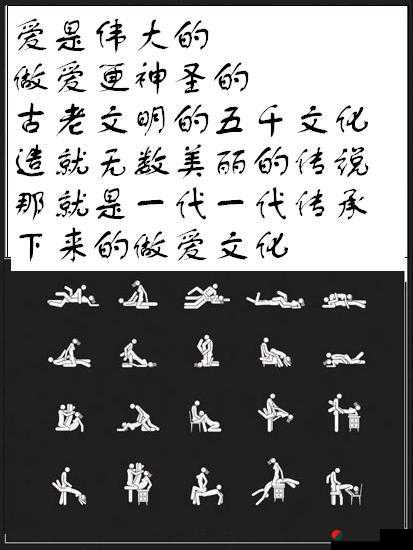 爱是伟大的
做爱更神圣的
古老文明的五千文化
造就无数美丽的传说
那就是一代一代传承
下来的做爱文化